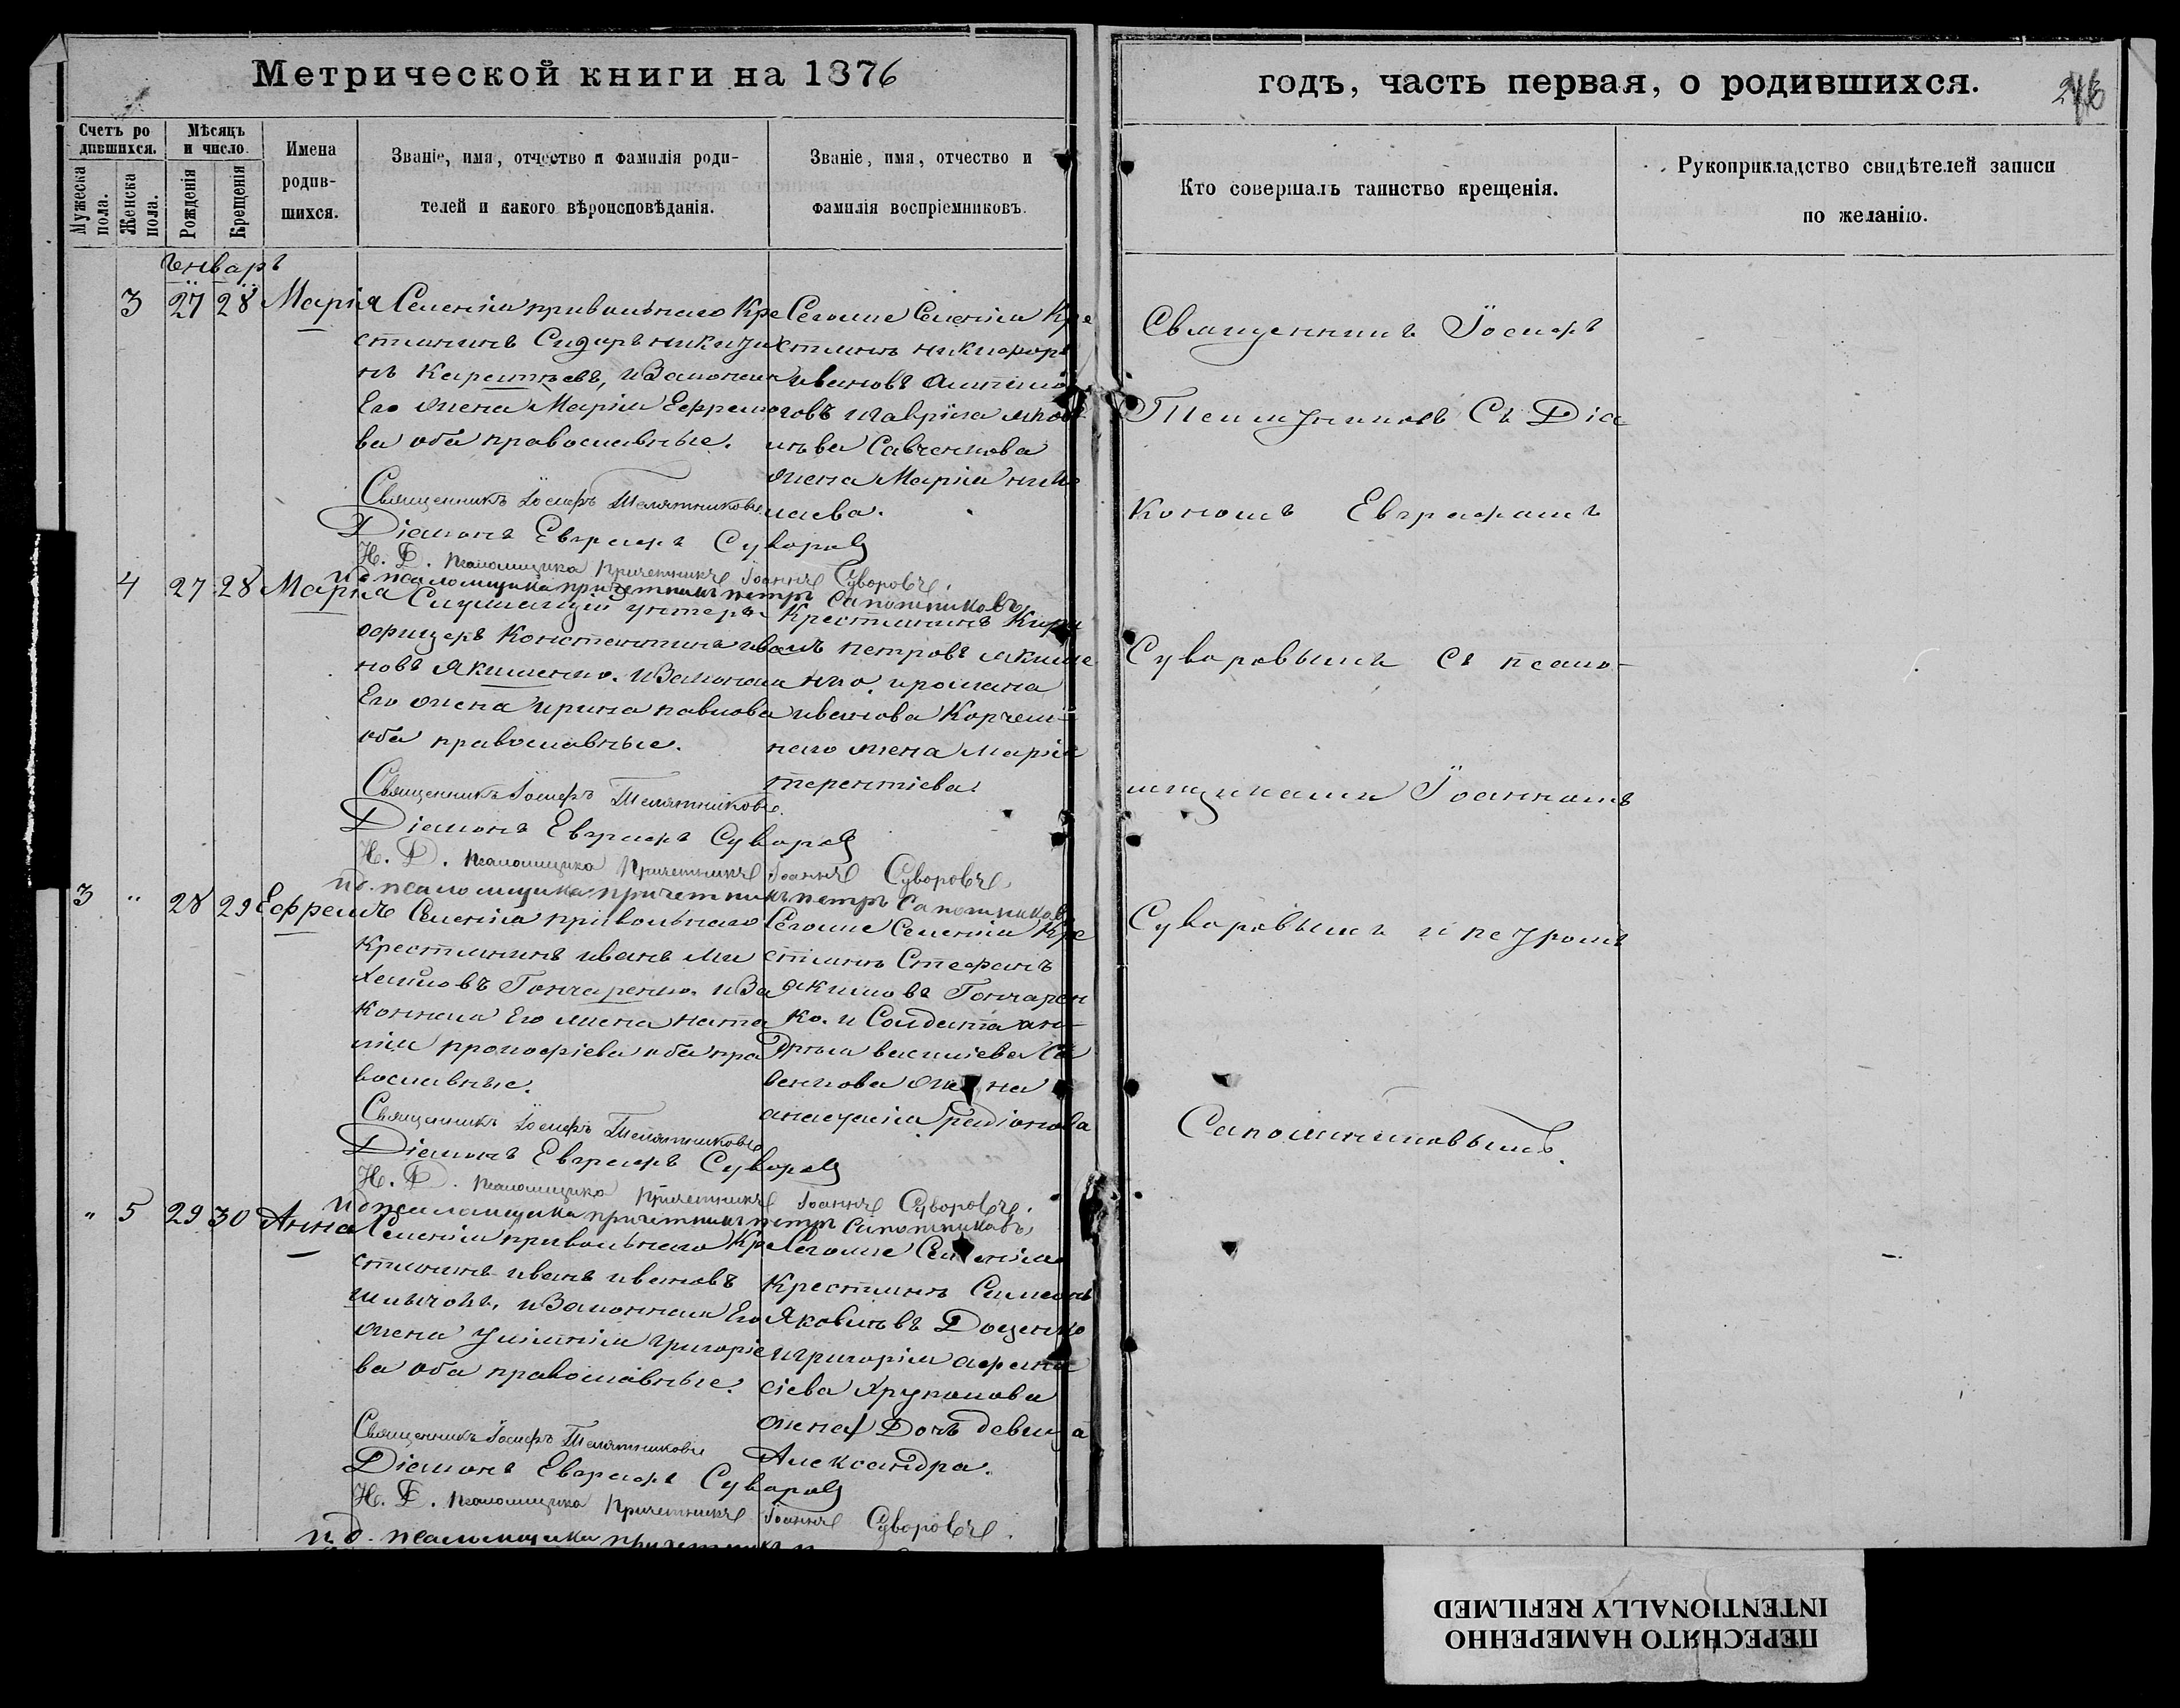 Метрической книги на 1876
годъ, часть первая, о родившихся.
246
Счетъ ро
дившихся.
Мужеска
пола.
Женска
пола.
Мѣсяцъ
и число.
Рожденія
Крещенія
Имена
родив-
шихся.
Званіе, имя, отчество и фамилія роди-
телей и какого вѣроисповѣданія.
Званіе, имя, отчество и
фамилія воспріемниковъ.
Кто совершалъ таинство крещенія.
Рукоприкладство свидѣтелей записи
по желанію.
Январь
3 27 28 Марія
Селенія привольнаго Кре
стьянинъ Сидоръ
Его жена Марія Ефремо
ва оба православные.
Священникъ Іосифъ Телятниковъ
Діаконъ Евграфъ Суворовъ
Н. Д. псаломщика Причетникъ Іоаннъ Суворовъ.
и д псаломщика причетникъ петръ Сапожниковъ
Сегоже Селенія Кре
стьянъ никифоръ
ивановъ
говъ игаврiла яков
лѣва Савченкова
жена Марія нико
лаева.
4 27 28 Марія
Служащій унтеръ
офицеръ Константинъ ива
новъ Якименко. иЗаконная
Его жена ирина павлова
оба православные.
Священникъ Іосифъ Телятниковъ
Діаконъ Евграфъ Суворовъ
Н. Д. псаломщика Причетникъ Іоаннъ Суворовъ
и д. псаломщика причетникъ петръ Сапожниковъ
Крестьянинъ Кири
лъ петровъ якиме
нко. иромана
иванова Корчем-
наго жена Марія
терентіева.
3 " 28 29 Ефремъ
Селенія привольнаго
Крестьянинъ иванъ Ми
хайловъ Гончаренко. иЗа
Конная Его жена ната
лія прокофіева оба пра
вославные.
Священникъ Іосифъ Телятниковъ
Діаконъ Евграфъ Суворовъ
Н. Д. псаломщика Причетникъ Іоаннъ Суворовъ.
и д псаломщика причетникъ петръ Сапожниковъ
Сегоже Селенія Кре
стьянъ Стефанъ
якимовъ Гончарен
ко. и Солдата ан-
дрѣя василіева Са
венкова жена
анастасія радіонова
" 5 29 30 Анна
Селенія привольнаго Кре
стьянинъ иванъ ивановъ
иЗаконная Его
жена Григоріе
ва оба православные.
Священникъ Іосифъ Телятниковъ
Діаконъ Евграфъ Суворовъ
Н. Д. псаломщика Причетникъ Іоаннъ Суворовъ.
и д. псаломщика причетникъ
Сегоже Селенія
Крестьянъ Симеонъ
Яковлѣвъ Доценко
играгорія афана
сіева
жена Дочь девица
Александра.
Священникъ Іосифъ
Телятниковъ Съ Діа
кономъ Евграфомъ
Суворовымъ съ псало-
мщиками Іоанномъ
Суворовымъ и петромъ
Сапожниковымъ.
ПЕРЕСНЯТО НАМЕРЕННО
INTENTIONALLY REFILMED